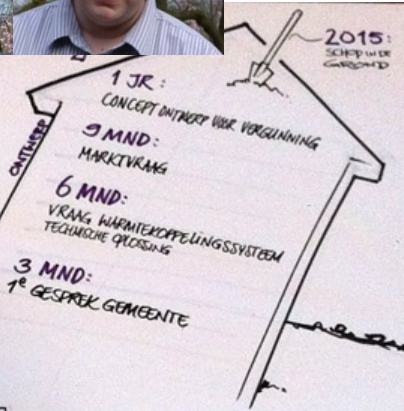 2015:
SCHOP IN DE
GROND
1 JR:
CONCEPT ONTWERP VOOR VERGUNNING
9 MND:
MARKTVRAAG
ONTWERP
6 MND:
VRAAG WARMTEKOPPELINGSSYSTEEM
TECHNISCHE OPLOSSING
3 MND:
1e GESPREK GEMEENTE